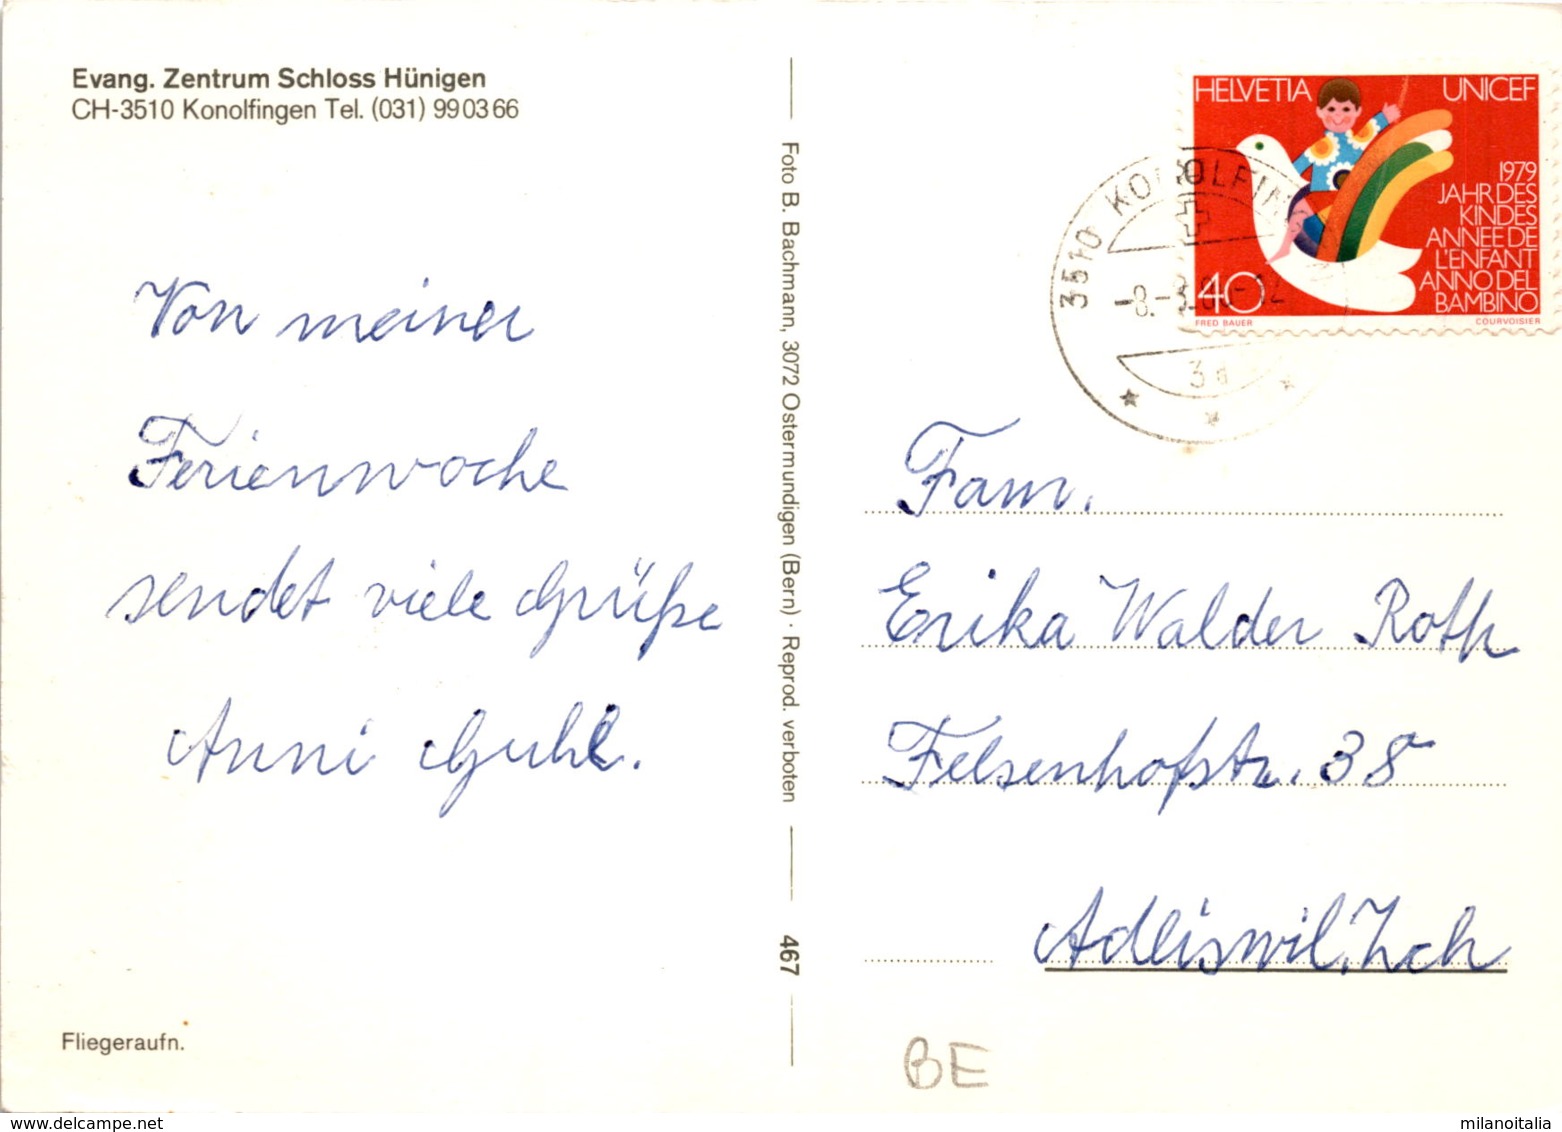 Evang. Zentrum Schloss Hünigen
CH-3510 Konolfingen Tel. (031) 990366
Von meiner
Ferienwoche
sendet viele Grüße
Anni Guhl.
Fliegeraufn.
Foto B. Bachmann, 3072 Ostermundigen (Bern) · Reprod. verboten
467
HELVETIA UNICEF
1979
JAHR DES
KINDES
ANNEE DE
L'ENFANT
ANNO DEL
BAMBINO
40
FRED BAUER COURVOISIER
3510 KONOLFING
Fam.
Erika Walder Roth
Felsenhofstr. 38
Adliswil, Zch
BE
www.delcampe.net
milanoitalia